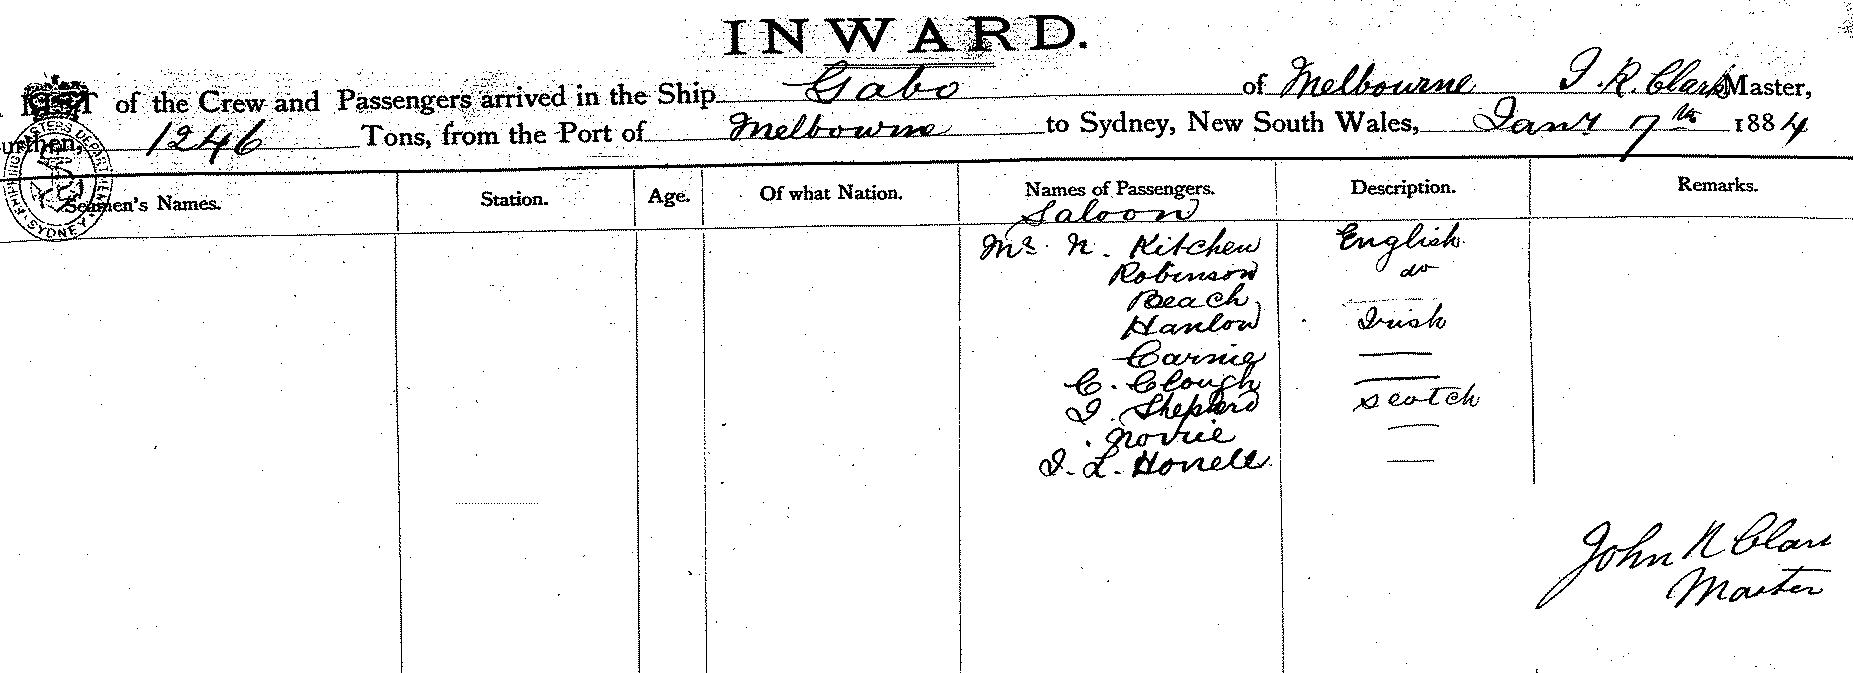 INWARD.
LIST of the Crew and Passengers arrived in the Ship Gabo of Melbourne J. R. Clark Master,
Burthen, 1246 Tons, from the Port of Melbourne to Sydney, New South Wales, Jany 7th 1884
SHIPPING MASTERS DEPARTMENT SYDNEY
Seamen's Names. Station. Age. Of what Nation. Names of Passengers. Description. Remarks.
Saloon
Mr. N. Kitchen English
Robinson do
Beach
Hanlon Irish
Carnie
C. Clough
J. Shepherd Scotch
Norrie
J. L. Horrell
John R Clark
Master